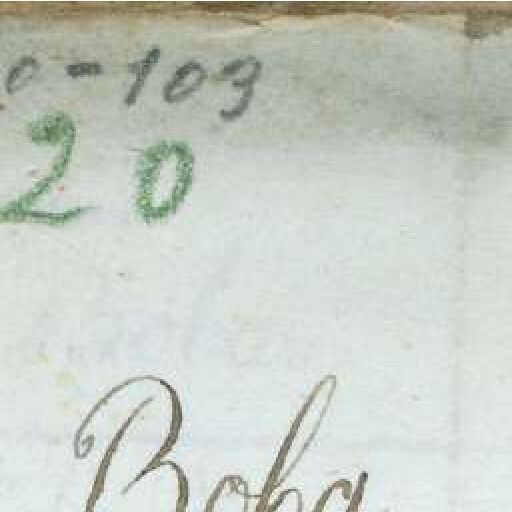 0-103
20
Boha